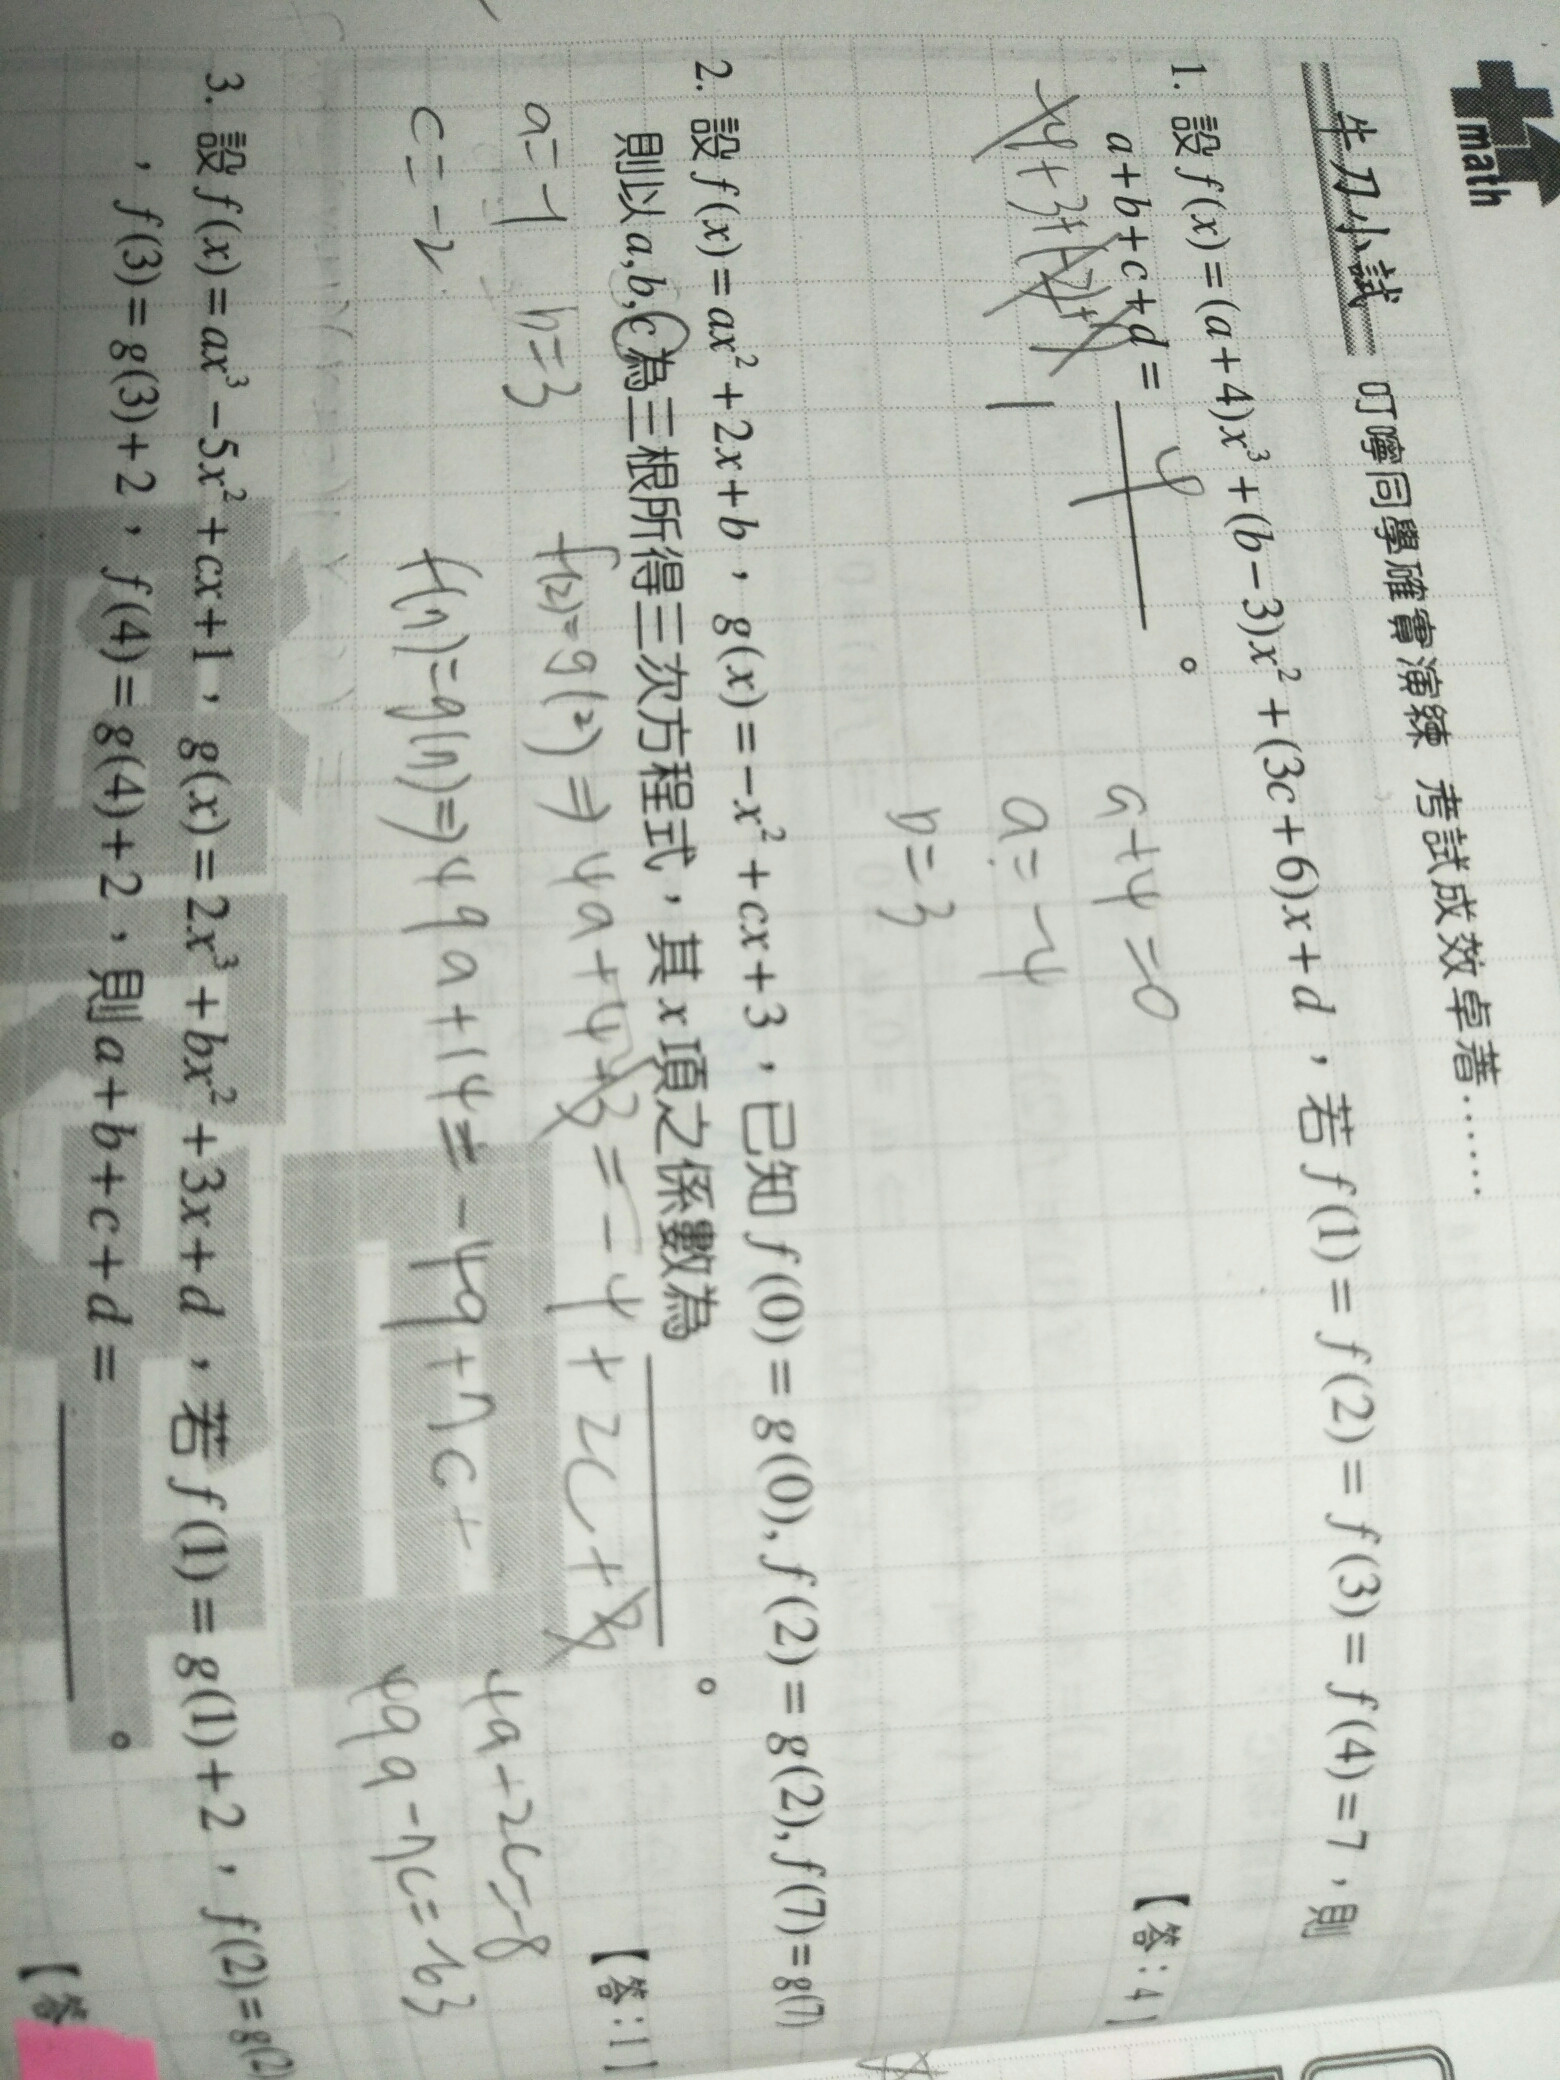 math
牛刀小試 叮嚀同學確實演練 考試成效卓著……
1. 設 f(x)=(a+4)x³+(b−3)x²+(3c+6)x+d，若 f(1)=f(2)=f(3)=f(4)=7，則
a+b+c+d= 4 。
【答:4】
a+4=0
a=-4
b=3
2. 設 f(x)=ax²+2x+b，g(x)=−x²+cx+3，已知 f(0)=g(0), f(2)=g(2), f(7)=g(7)
則以 a,b,c 為三根所得三次方程式，其 x 項之係數為 。
【答:1】
a=-1 b=3 f(2)=g(2)⇒4a+4+3=-4+2c+3
c=-2 f(7)=g(7)⇒49a+14=-49+7c+
4a+2c=-8
49a-7c=-63
3. 設 f(x)=ax³−5x²+cx+1，g(x)=2x³+bx²+3x+d，若 f(1)=g(1)+2，f(2)=g(2)
，f(3)=g(3)+2，f(4)=g(4)+2，則 a+b+c+d= 。
【答